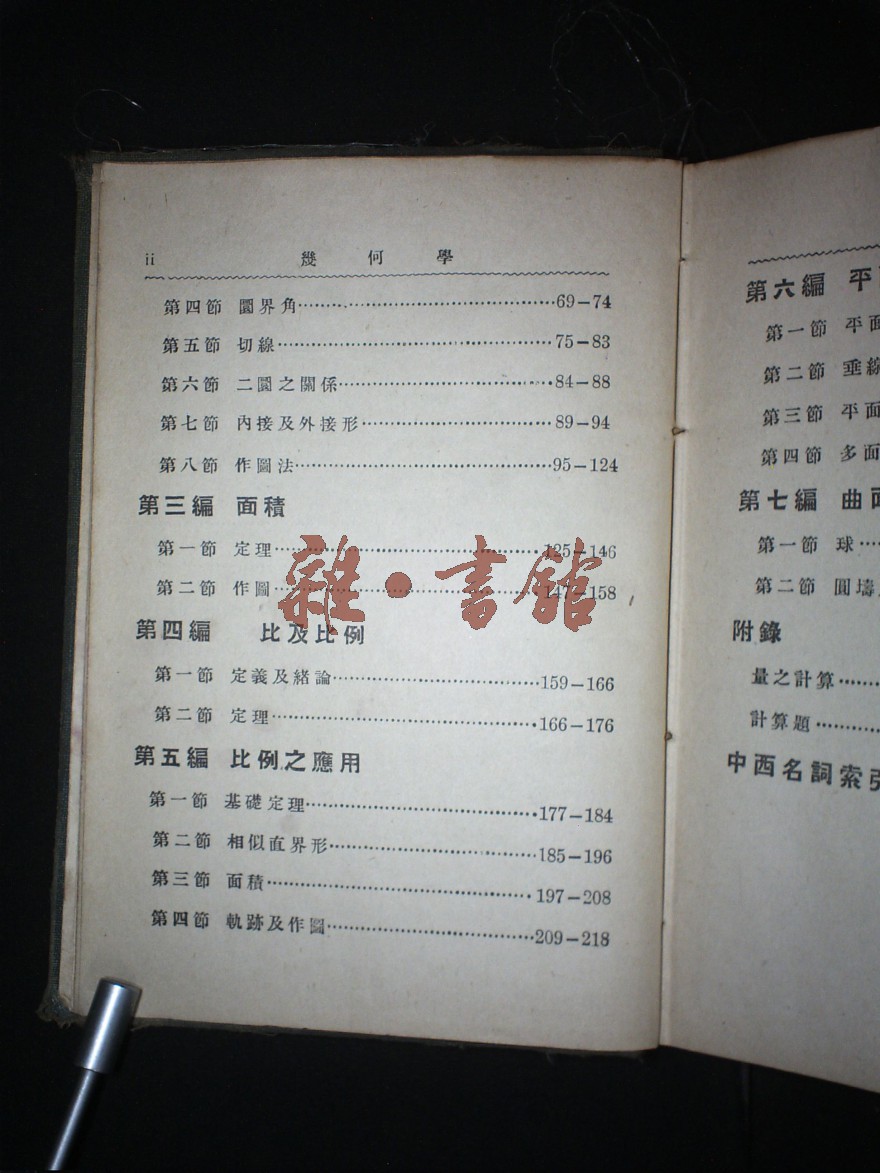 ii 幾何學
第四節 圜界角 69-74
第五節 切線 75-83
第六節 二圜之關係 84-88
第七節 內接及外接形 89-94
第八節 作圖法 95-124
第三編 面積
第一節 定理 125-146
第二節 作圖 147-158
第四編 比及比例
第一節 定義及緒論 159-166
第二節 定理 166-176
第五編 比例之應用
第一節 基礎定理 177-184
第二節 相似直界形 185-196
第三節 面積 197-208
第四節 軌跡及作圖 209-218
雜·書館
第六編 平
第一節 平面
第二節 垂線
第三節 平面
第四節 多面
第七編 曲面
第一節 球
第二節 圓壔
附錄
量之計算
計算題
中西名詞索引